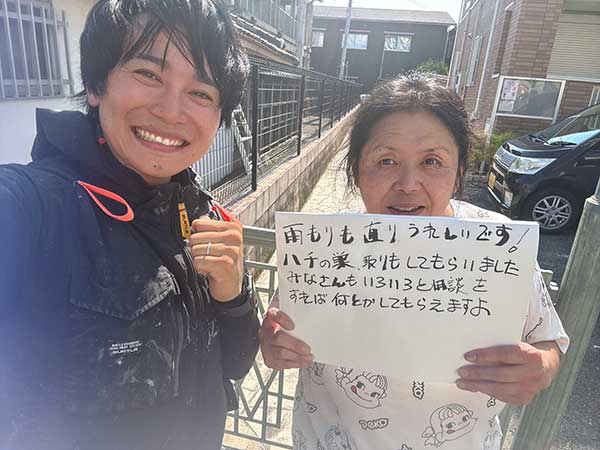 雨もりも直りうれしいです!
ハチの巣、取りもしてもらいました
みなさんもいろいろと相談を
すれば何とかしてもらえますよ
PEKO